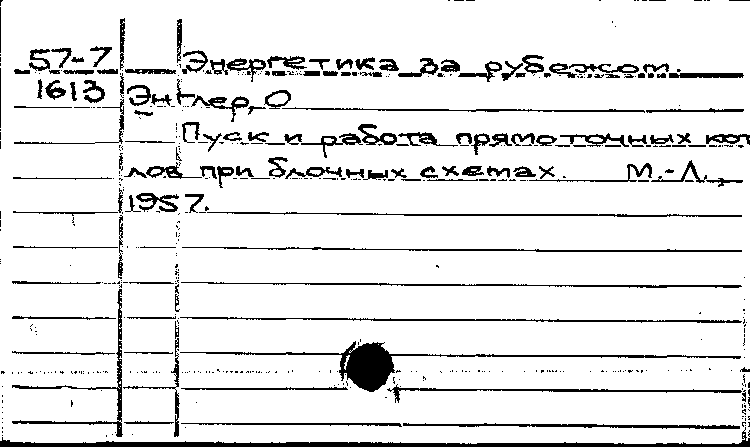 57-7 Энергетика за рубежом.
1613 Энглер, О
Пуск и работа прямоточных кот
лов при блочных схемах. М.-Л.,
1957.